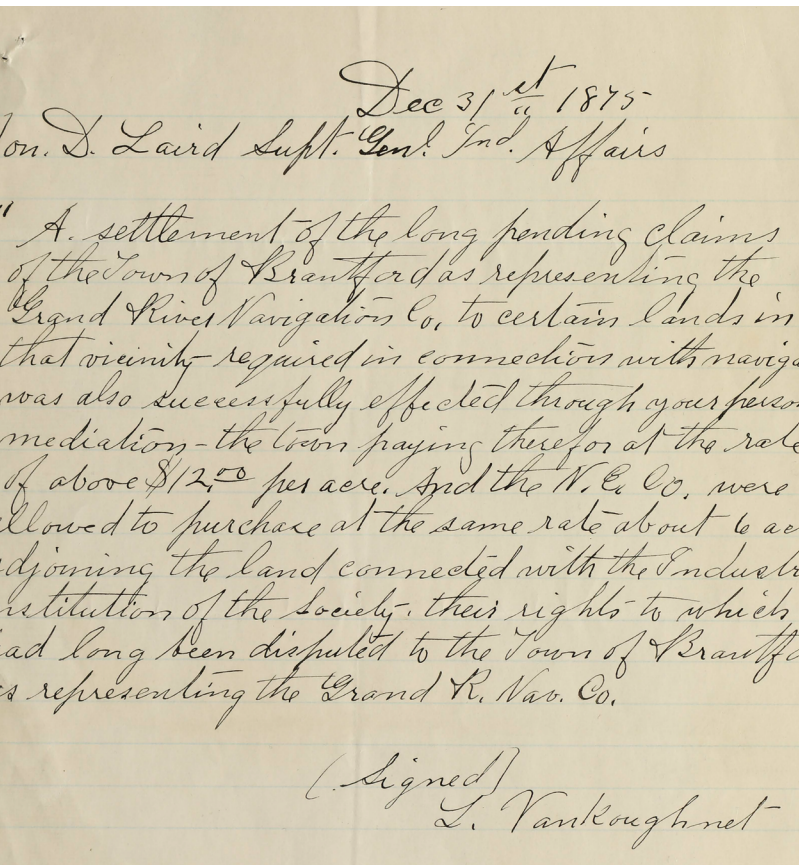 Dec 31st 1875
on. D. Laird Supt. Genl. Ind. Affairs
" A. settlement of the long pending claims
of the Town of Brantford as representing the
Grand River Navigation Co, to certain lands in
that vicinity required in connection with naviga
was also successfully effected through your person
mediation - the town paying therefor at the rate
of above $12.00 per acre. And the N. E. Co. were
allowed to purchase at the same rate about 6 ac
djoining the land connected with the Industr
nstitution of the Society. their rights to which
ad long been disputed to the Town of Brantfo
s representing the Grand R. Nav. Co.
(Signed)
L. Vankoughnet